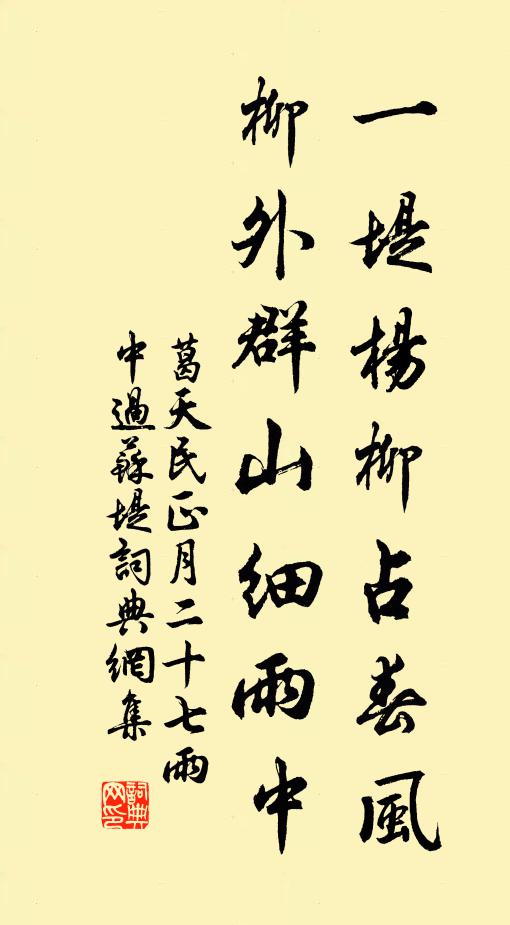 一堤楊柳占春風
柳外群山細雨中
葛天民正月二十七雨
中過蘇堤詞典網集
詞典
网印